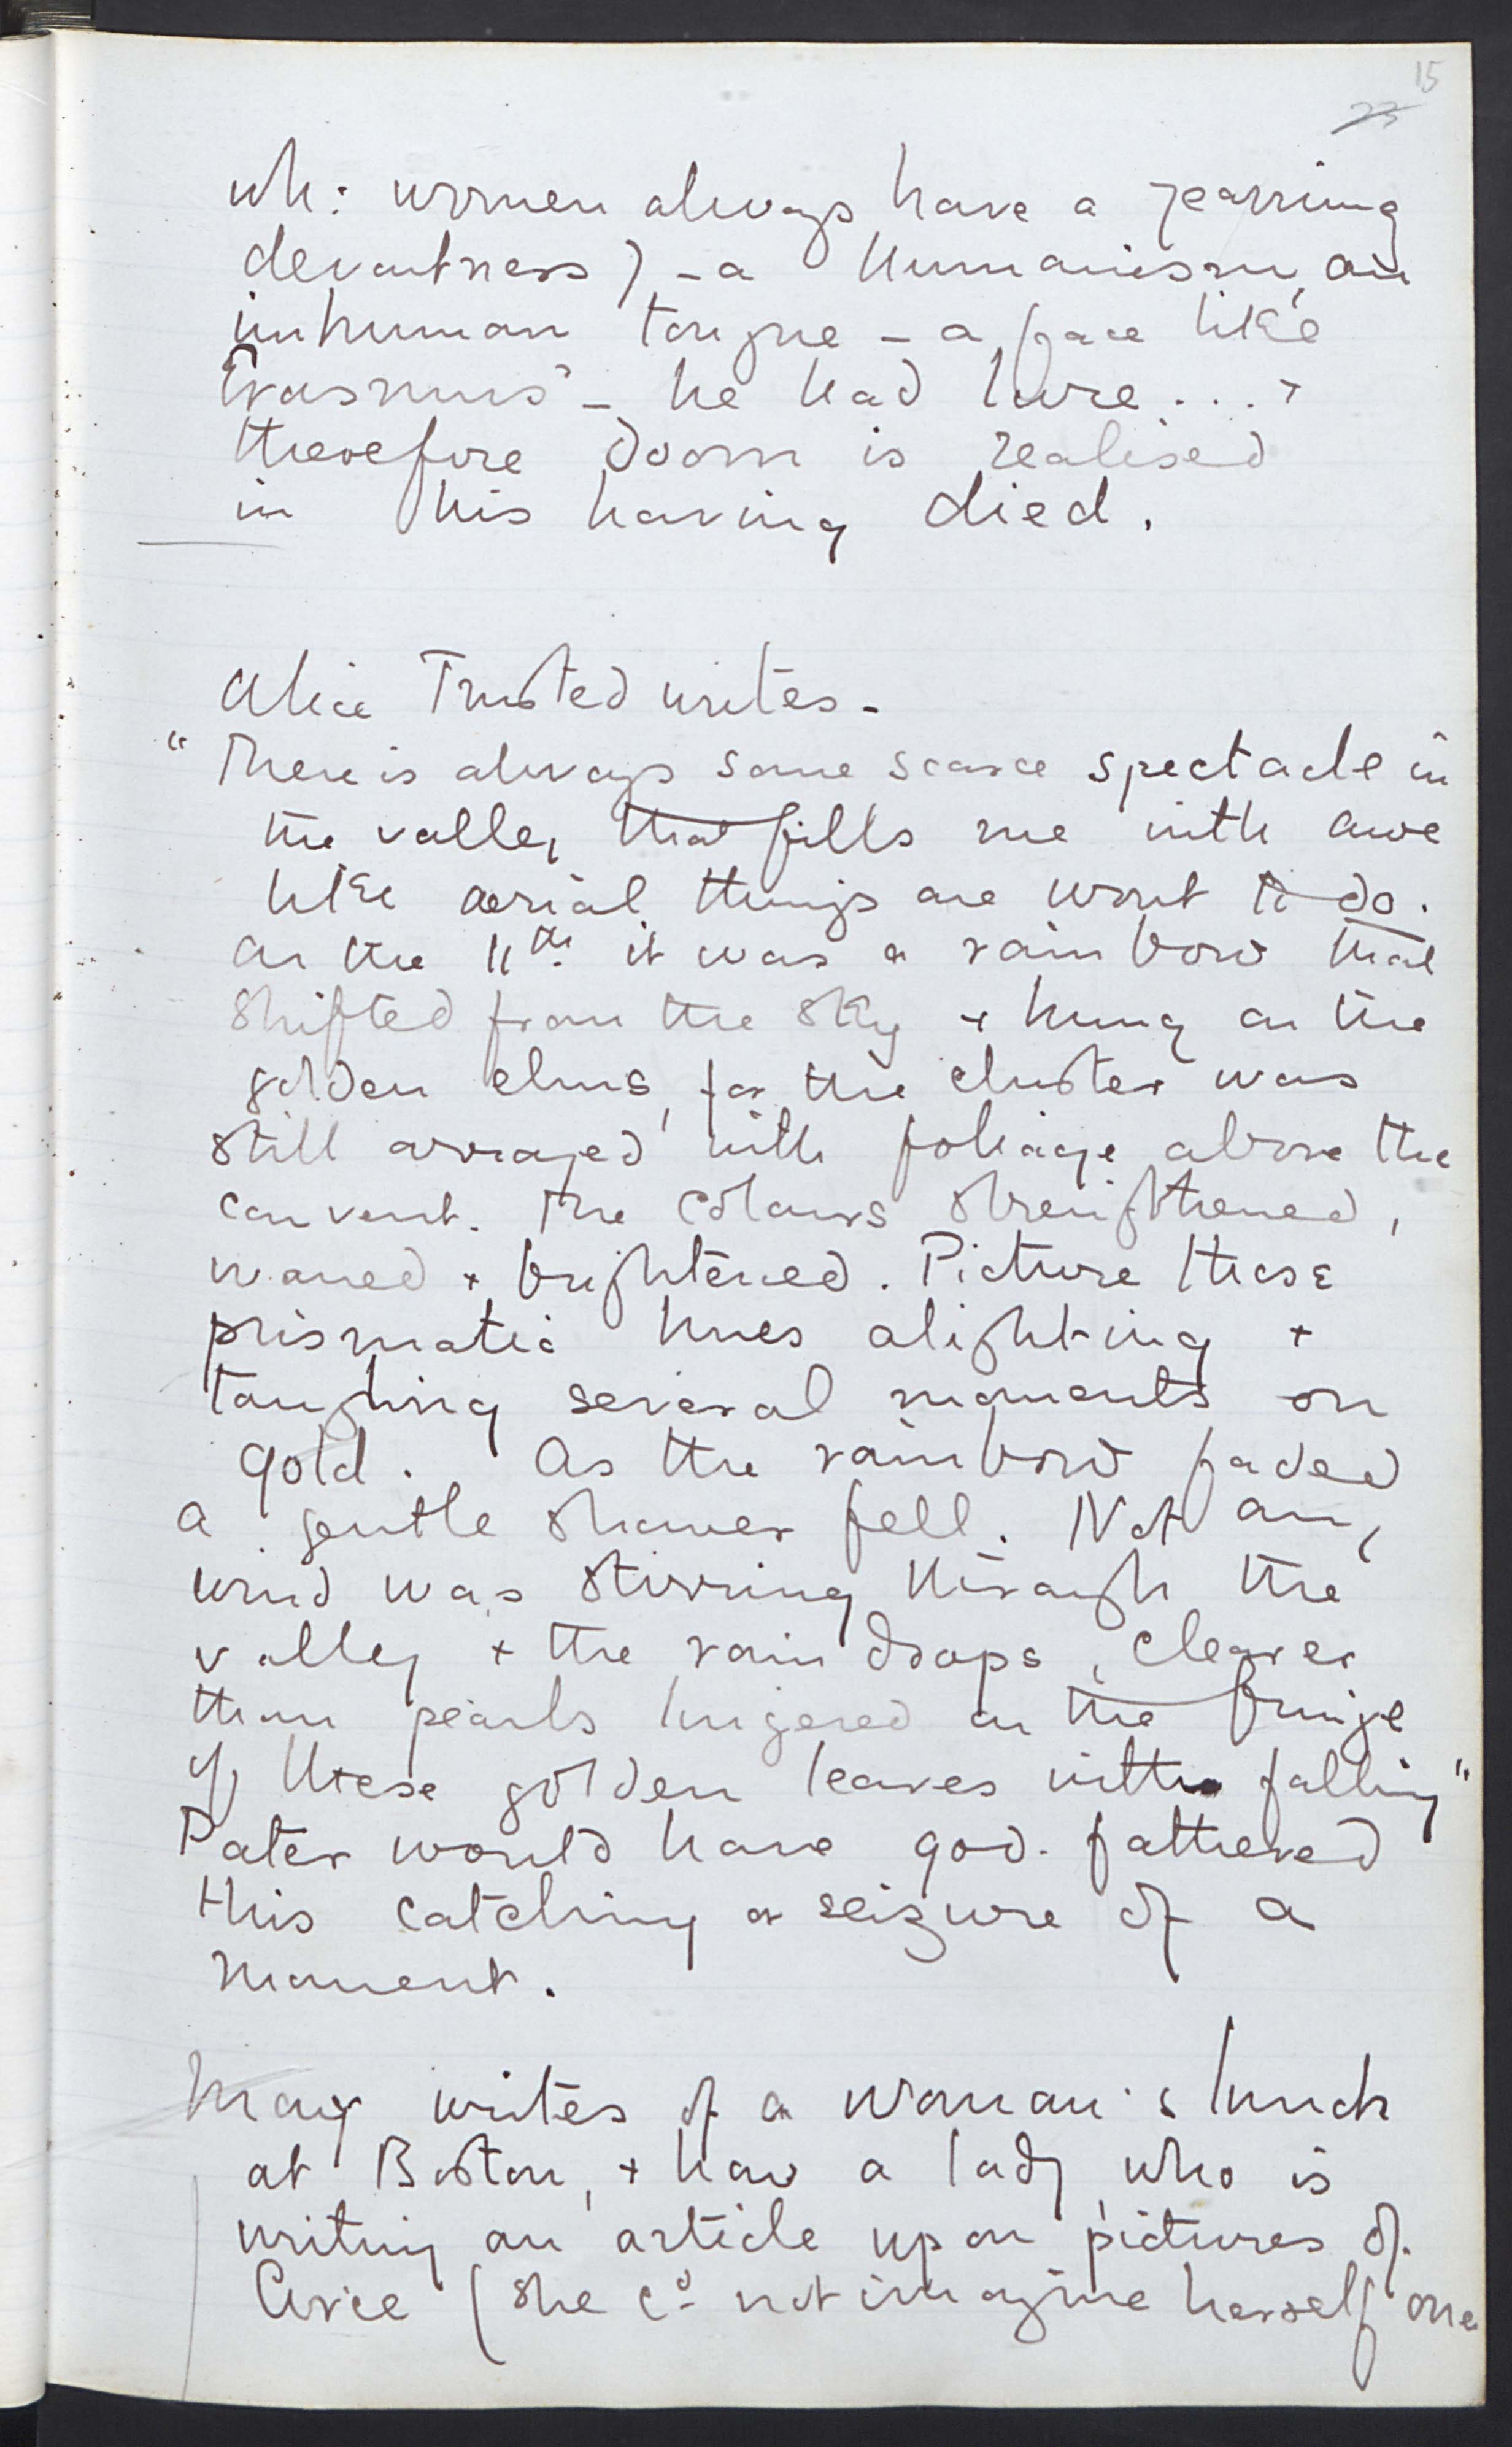 15
23
wh: women always have a yearning
devoutness) - a humanism, an
inhuman tongue - a face like
Erasmus' - he had lure . . . &
therefore doom is realised
in his having died.
Alice Trusted writes -
"There is always some scarce spectacle in
the valley that fills me with awe
like aerial things are wont to do.
On the 11th. it was a rainbow that
shifted from the sky + hung on the
golden elms, for the cluster was
still arrayed with foliage above the
convent. The colours strengthened,
waned + brightened. Picture these
prismatic hues alighting +
laughing several moments on
gold. As the rainbow faded
a gentle shower fell. Not any
wind was stirring through the
valley + the rain drops, clearer
than pearls lingered on the fringe
of these golden leaves without falling"
Pater would have god-fathered
this catching or seizure of a
moment.
Mary writes of a woman's lunch
at Boston, + how a lady, who is
writing an article upon pictures of
Circe (she cd not imagine herself one